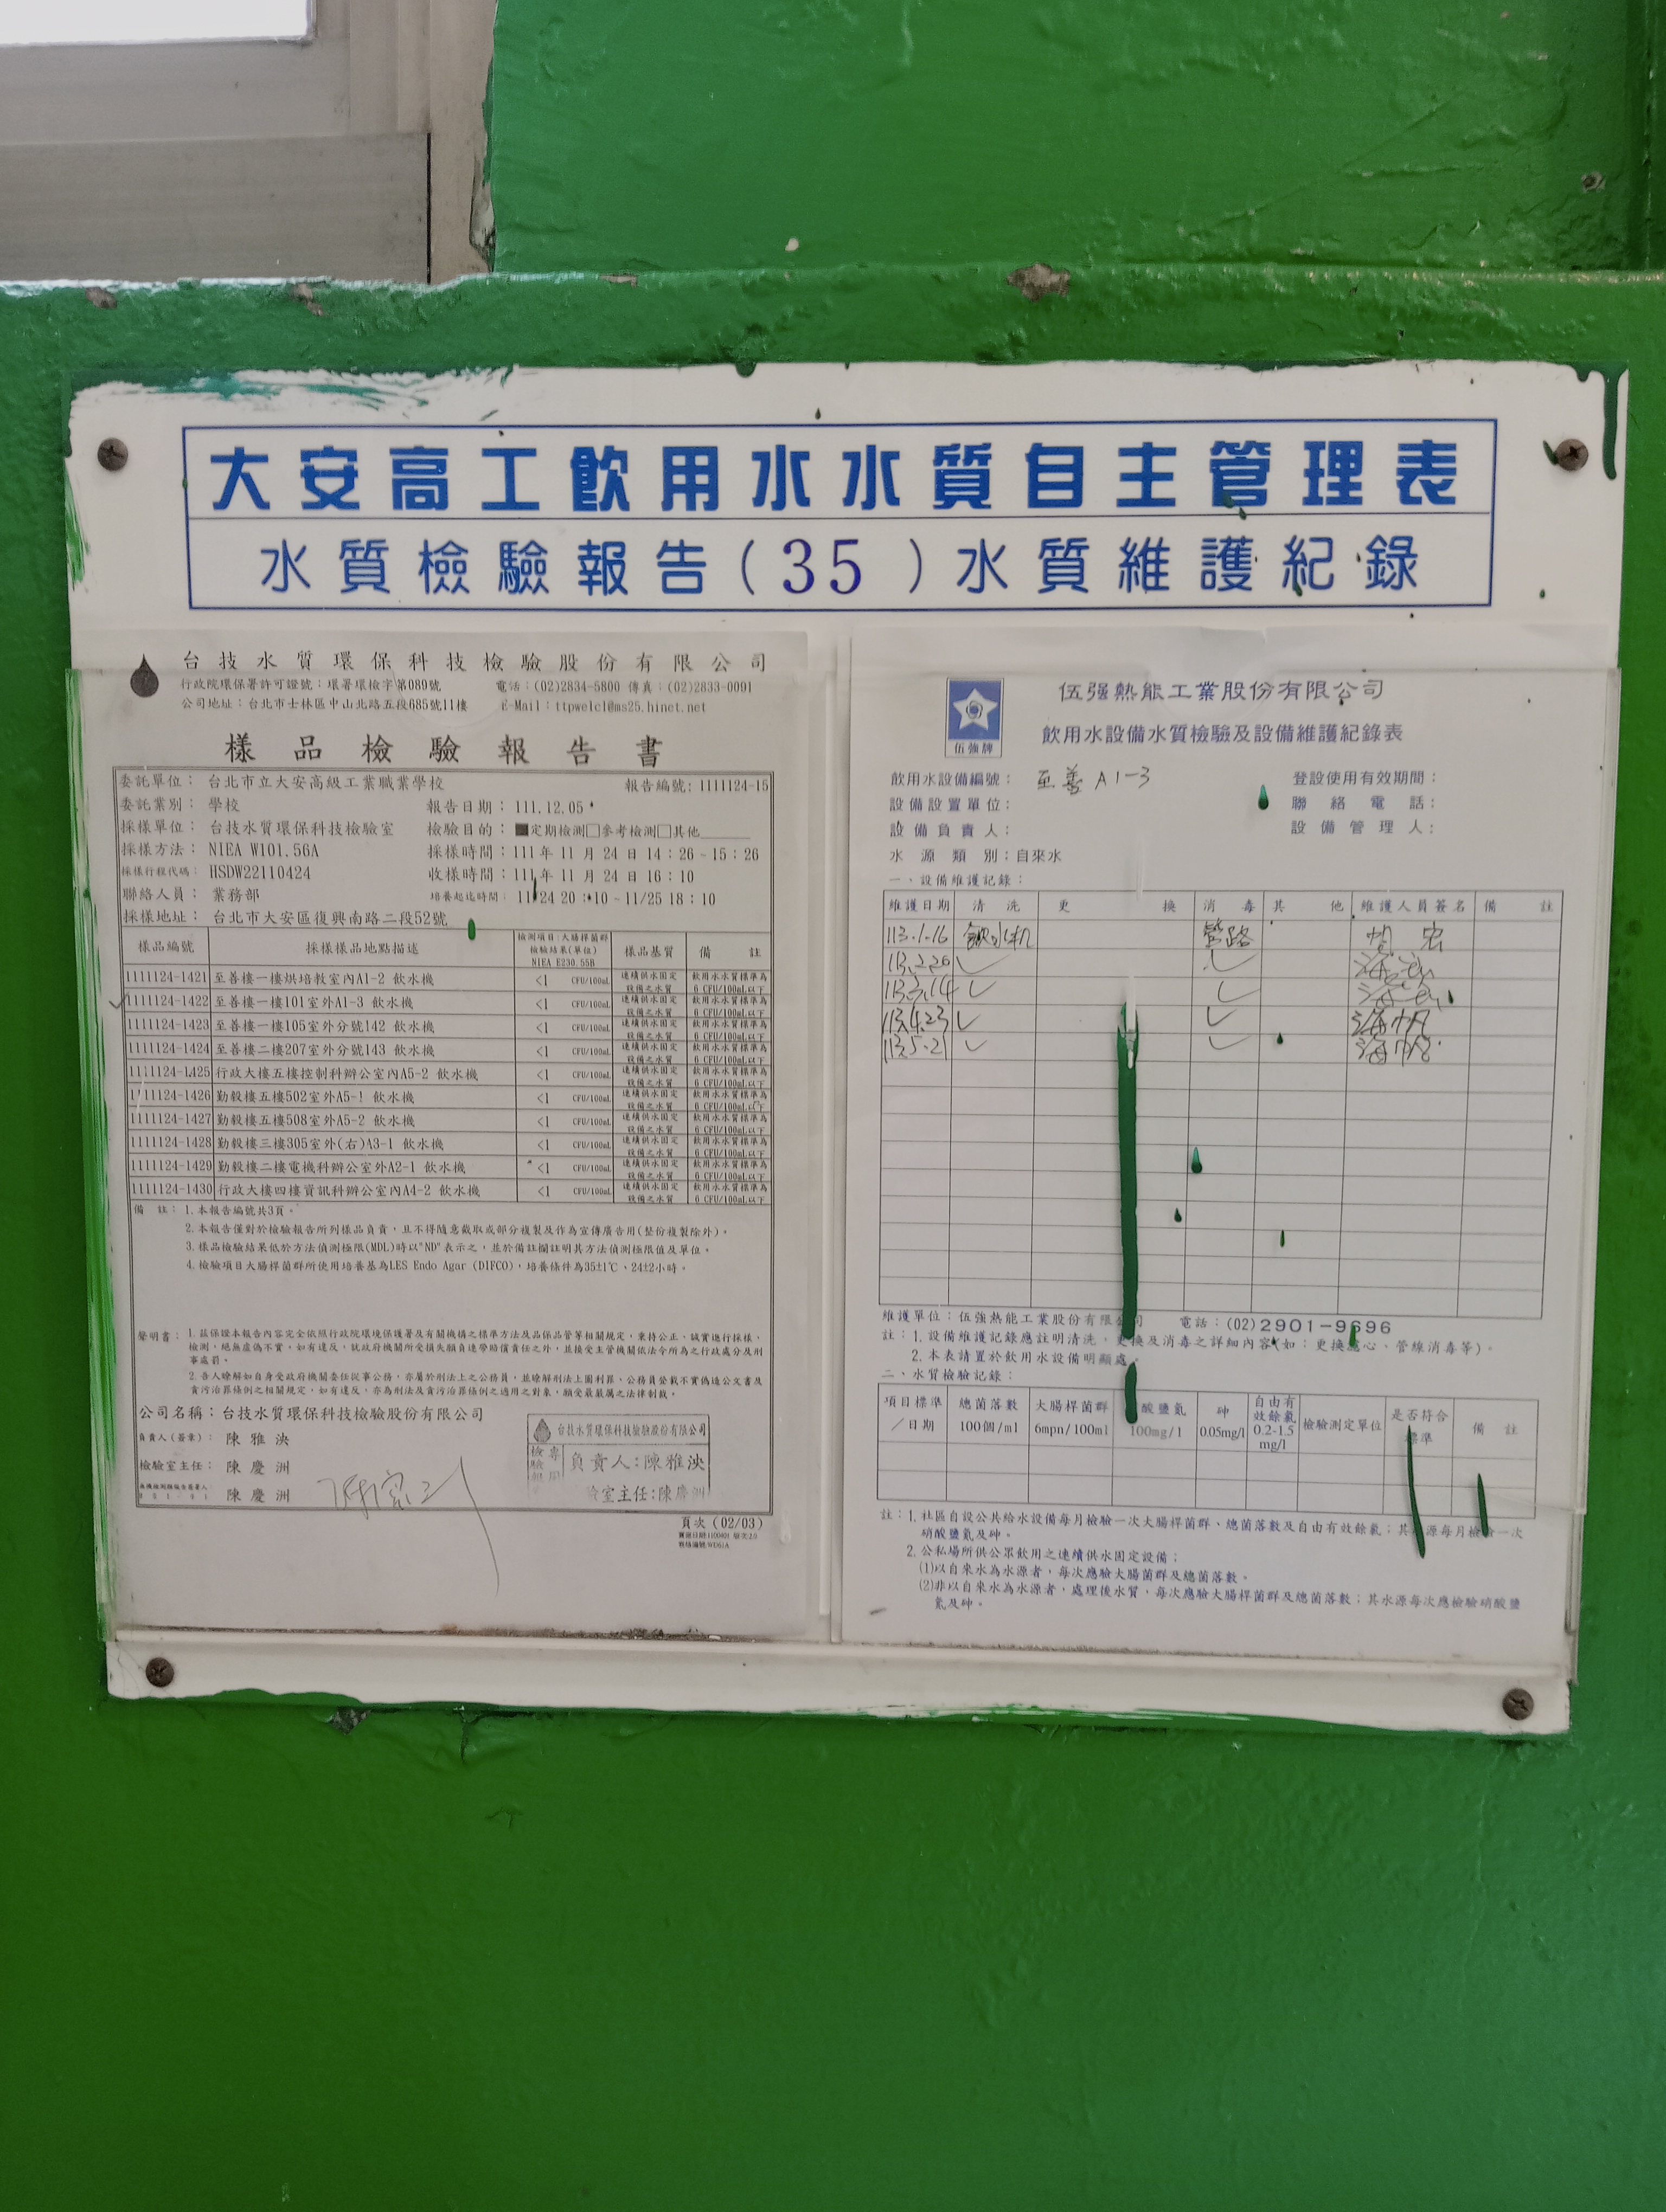 大安高工飲用水水質自主管理表
水質檢驗報告(35)水質維護紀錄
台技水質環保科技檢驗股份有限公司
行政院環保署許可證號：環署環檢字第089號 電話：(02)2834-5800 傳真：(02)2833-0091
公司地址：台北市士林區中山北路五段685號11樓 E-Mail：ttpwelcl@ms25.hinet.net
樣品檢驗報告書
委託單位： 台北市立大安高級工業職業學校 報告編號: 1111124-15
委託業別： 學校 報告日期： 111.12.05
採樣單位： 台技水質環保科技檢驗室 檢驗目的：■定期檢測□參考檢測□其他
採樣方法： NIEA W101.56A 採樣時間：111年 11 月 24 日 14：26 ~ 15：26
採樣行程代碼： HSDW22110424 收樣時間：111年 11 月 24 日 16：10
聯絡人員： 業務部 培養起迄時間： 11/24 20：10 ~ 11/25 18：10
採樣地址： 台北市大安區復興南路二段52號
樣品編號 採樣樣品地點描述 檢測項目 大腸桿菌群 檢驗結果(單位) NIEA E230.55B 樣品基質 備 註
1111124-1421 至善樓一樓烘培教室內A1-2 飲水機 <1 CFU/100mL 連續供水固定設備之水質 飲用水水質標準為6 CFU/100mL以下
1111124-1422 至善樓一樓101室外A1-3 飲水機 <1 CFU/100mL 連續供水固定設備之水質 飲用水水質標準為6 CFU/100mL以下
1111124-1423 至善樓一樓105室外分號142 飲水機 <1 CFU/100mL 連續供水固定設備之水質 飲用水水質標準為6 CFU/100mL以下
1111124-1424 至善樓二樓207室外分號143 飲水機 <1 CFU/100mL 連續供水固定設備之水質 飲用水水質標準為6 CFU/100mL以下
1111124-1425 行政大樓五樓控制科辦公室內A5-2 飲水機 <1 CFU/100mL 連續供水固定設備之水質 飲用水水質標準為6 CFU/100mL以下
1111124-1426 勤毅樓五樓502室外A5-1 飲水機 <1 CFU/100mL 連續供水固定設備之水質 飲用水水質標準為6 CFU/100mL以下
1111124-1427 勤毅樓五樓508室外A5-2 飲水機 <1 CFU/100mL 連續供水固定設備之水質 飲用水水質標準為6 CFU/100mL以下
1111124-1428 勤毅樓三樓305室外(右)A3-1 飲水機 <1 CFU/100mL 連續供水固定設備之水質 飲用水水質標準為6 CFU/100mL以下
1111124-1429 勤毅樓二樓電機科辦公室外A2-1 飲水機 <1 CFU/100mL 連續供水固定設備之水質 飲用水水質標準為6 CFU/100mL以下
1111124-1430 行政大樓四樓資訊科辦公室內A4-2 飲水機 <1 CFU/100mL 連續供水固定設備之水質 飲用水水質標準為6 CFU/100mL以下
備 註： 1.本報告編號共3頁。
2.本報告僅對於檢驗報告所列樣品負責，且不得隨意截取或部分複製及作為宣傳廣告用(整份複製除外)。
3.樣品檢驗結果低於方法偵測極限(MDL)時以"ND"表示之，並於備註欄註明其方法偵測極限值及單位。
4.檢驗項目大腸桿菌群所使用培養基為LES Endo Agar (DIFCO)，培養條件為35±1℃、24±2小時。
聲明書： 1.茲保證本報告內容完全依照行政院環境保護署及有關機構之標準方法及品保品管等相關規定，秉持公正、誠實進行採樣、
檢測，絕無虛偽不實，如有違反，就政府機關所受損失願負連帶賠償責任之外，並接受主管機關依法令所為之行政處分及刑
事處罰。
2.吾人瞭解如自身受政府機關委任從事公務，亦屬於刑法上之公務員，並瞭解刑法上圖利罪、公務員登載不實偽造公文書及
貪污治罪條例之相關規定，如有違反，亦為刑法及貪污治罪條例之適用之對象，願受最嚴厲之法律制裁。
公司名稱：台技水質環保科技檢驗股份有限公司
負責人(簽章)： 陳雅泱
檢驗室主任： 陳慶洲
陳慶洲
台技水質環保科技檢驗股份有限公司
負責人:陳雅泱
室主任:陳慶洲
頁次(02/03)
伍強牌
伍強熱能工業股份有限公司
飲用水設備水質檢驗及設備維護紀錄表
飲用水設備編號： 至善 A1-3 登設使用有效期間：
設備設置單位： 聯絡電話：
設備負責人： 設備管理人：
水源類別：自來水
一、設備維護記錄：
維護日期 清洗 更換 消毒 其他 維護人員簽名 備註
113.1.16 飲水机 管路
113.2.26 ✓ ✓
113.3.14 ✓ ✓
113.4.23 ✓ ✓
113.5.21 ✓ ✓
維護單位：伍強熱能工業股份有限公司 電話：(02)2901-9696
註：1.設備維護記錄應註明清洗，更換及消毒之詳細內容(如：更換濾心、管線消毒等)。
2.本表請置於飲用水設備明顯處。
二、水質檢驗記錄：
項目標準／日期 總菌落數 100個/ml 大腸桿菌群 6mpn/100ml 酸鹽氮 100mg/l 砷 0.05mg/l 自由有效餘氯 0.2-1.5 mg/l 檢驗測定單位 是否符合標準 備註
註：1.社區自設公共給水設備每月檢驗一次大腸桿菌群、總菌落數及自由有效餘氯；其水源每月檢驗一次
硝酸鹽氮及砷。
2.公私場所供公眾飲用之連續供水固定設備；
(1)以自來水為水源者，每次應驗大腸菌群及總菌落數。
(2)非以自來水為水源者，處理後水質，每次應驗大腸桿菌群及總菌落數；其水源每次應檢驗硝酸鹽
氮及砷。